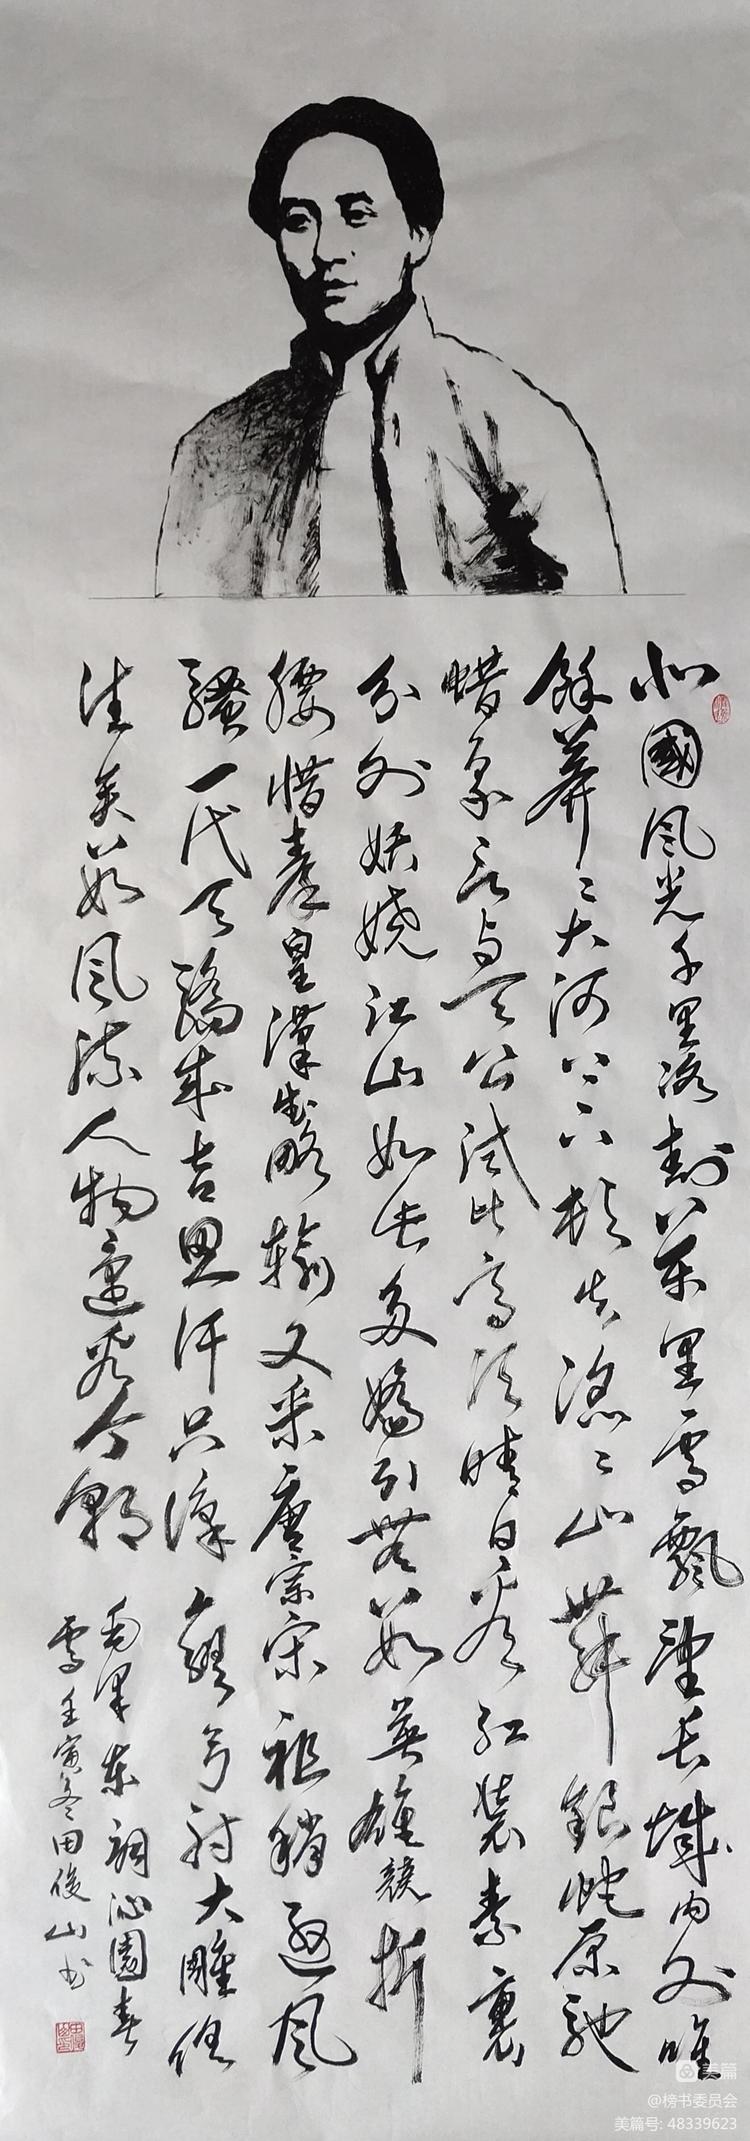 北國风光千里冰封万里雪飘望长城内外唯
餘莽〻大河上下顿失滔〻山舞銀蛇原驰
蜡象欲与天公试比高须晴日看红装素裹
分外妖娆江山如此多娇引無数英雄競折
腰惜秦皇漢武略输文采唐宗宋祖稍逊风
騷一代天骄成吉思汗只识弯弓射大雕俱
往矣数风流人物还看今朝
毛泽东词沁園春
雪壬寅冬田俊山书
美篇
@榜书委员会
美篇号: 48339623